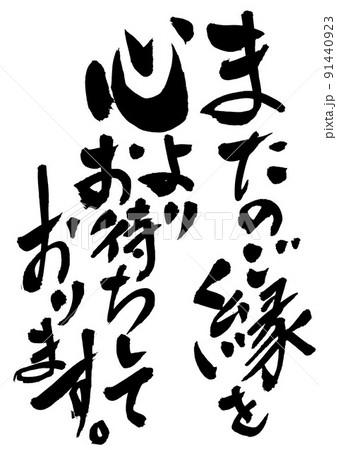 またのご縁を
心より
お待ちして
おります。
PIXTA
pixta.jp - 91440923